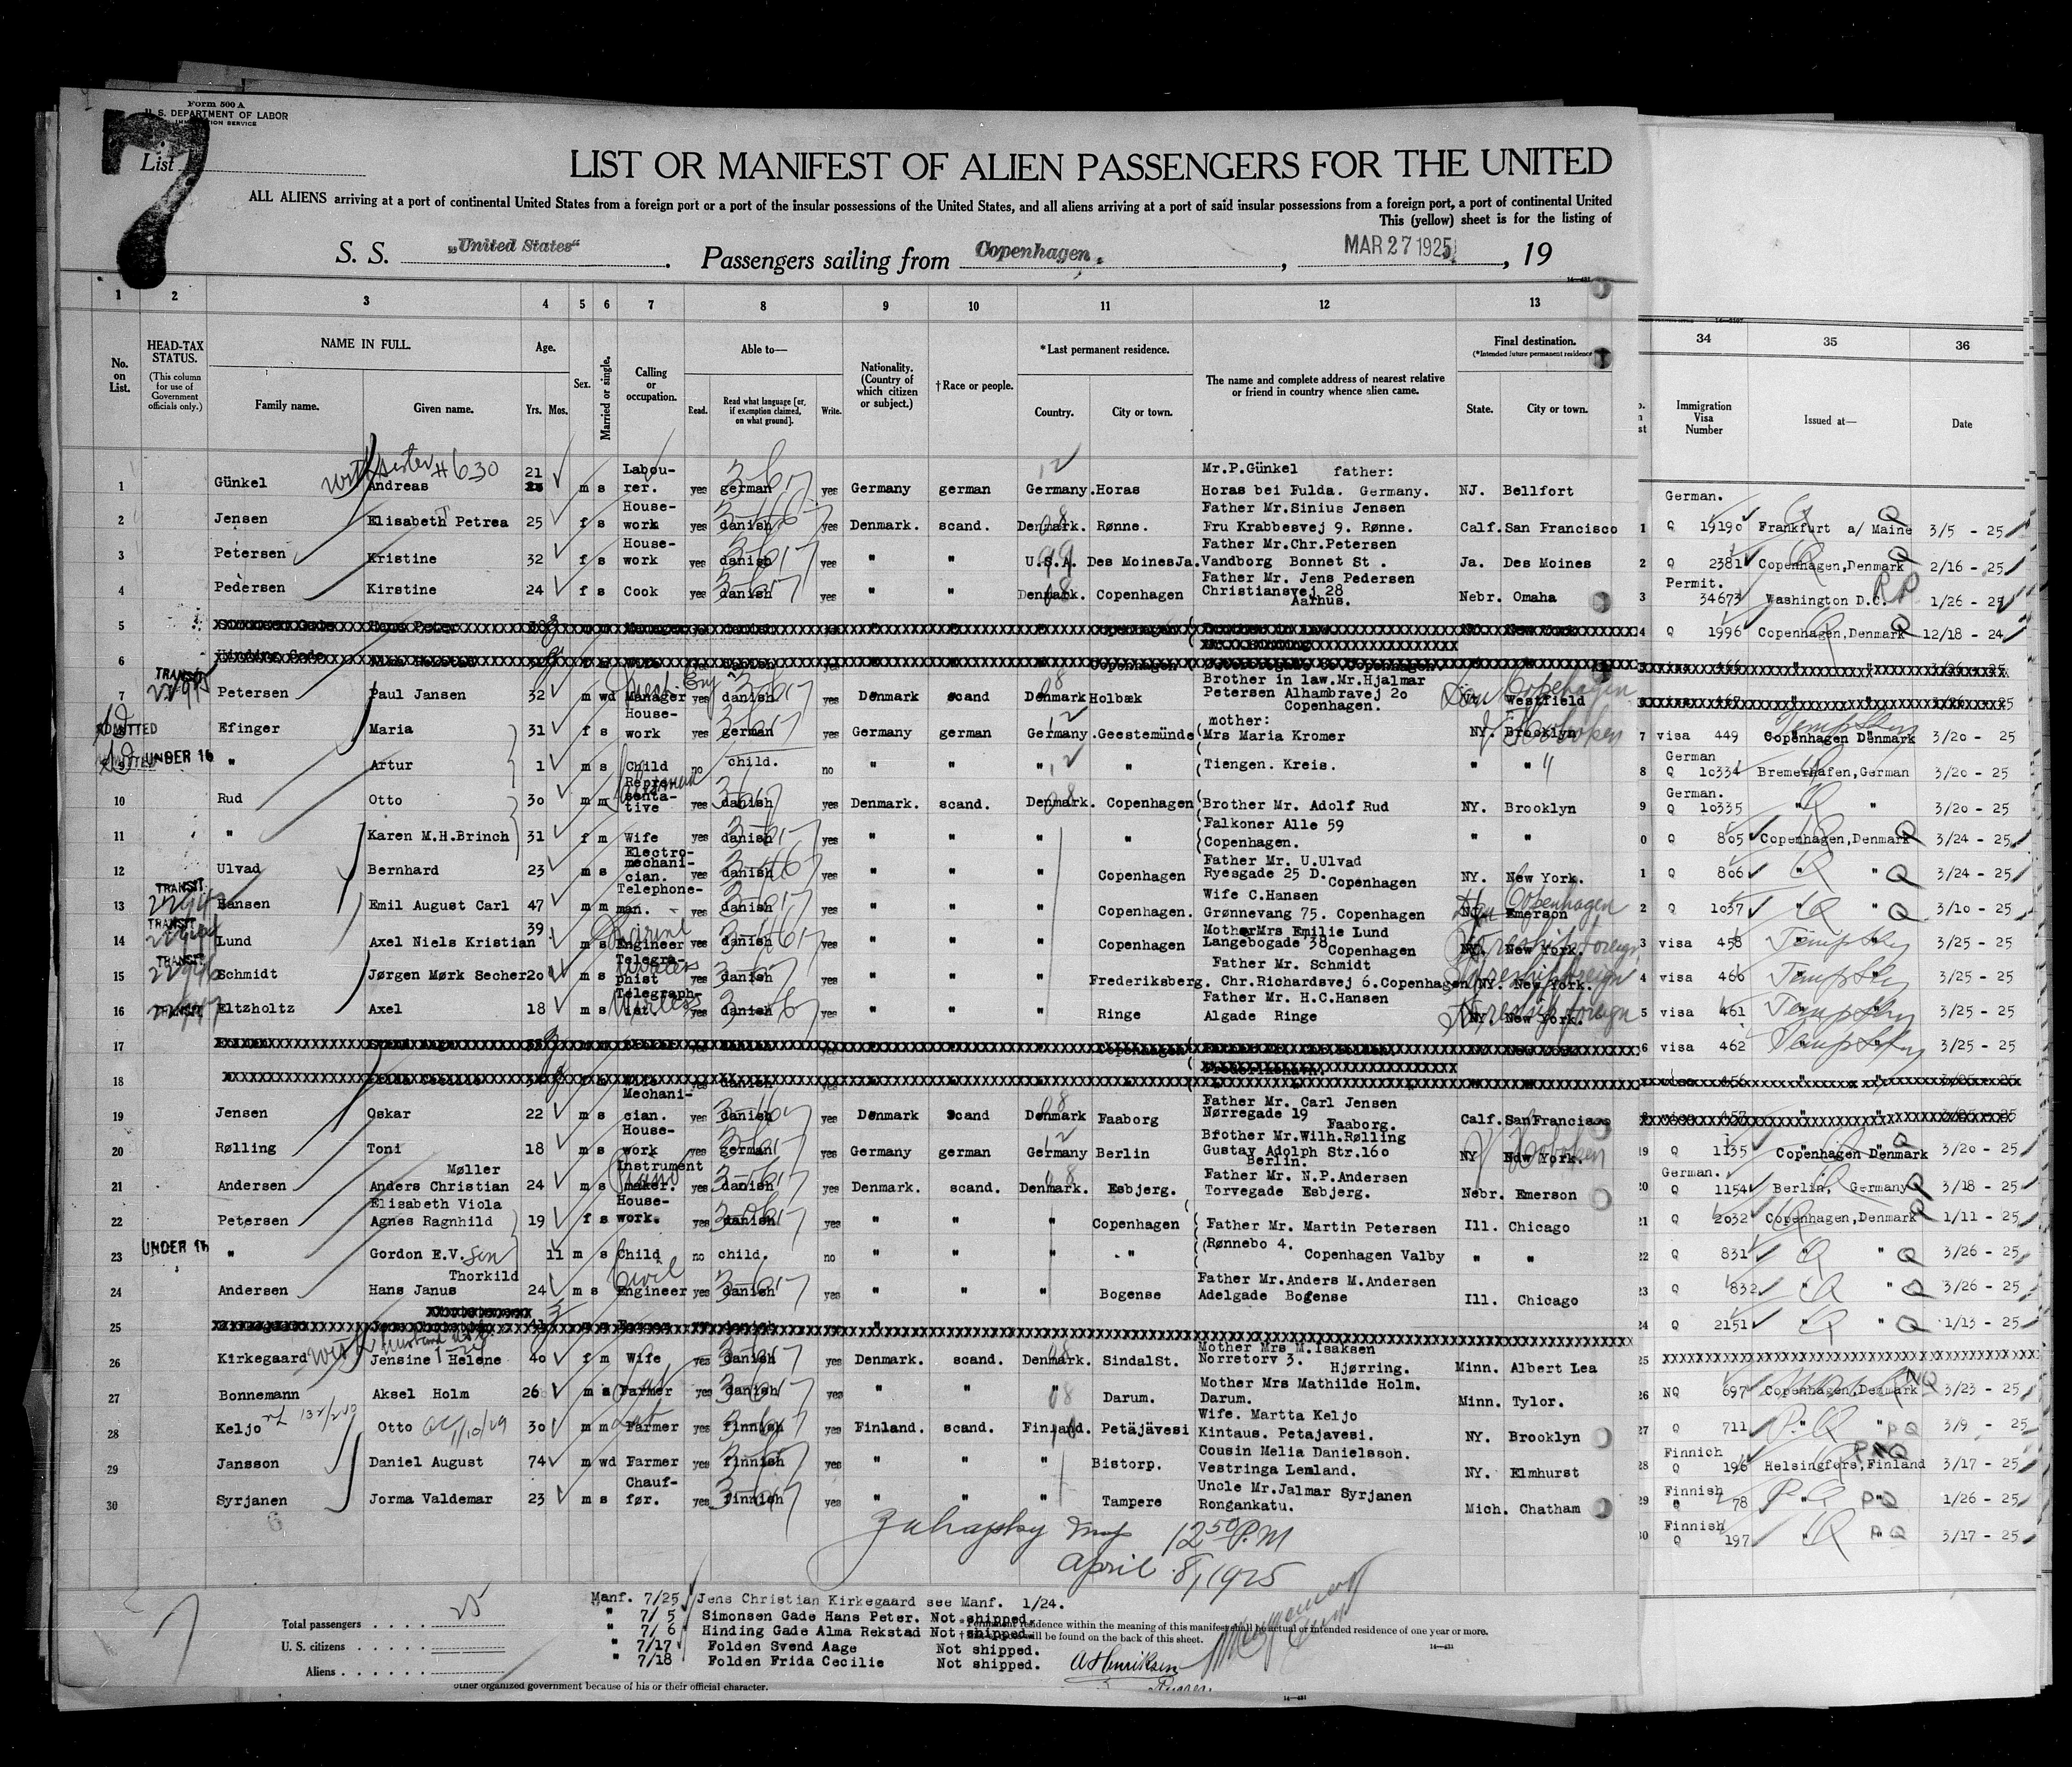 Form 500 A
U. S. DEPARTMENT OF LABOR
IMMIGRATION SERVICE
7
List
LIST OR MANIFEST OF ALIEN PASSENGERS FOR THE UNITED
ALL ALIENS arriving at a port of continental United States from a foreign port or a port of the insular possessions of the United States, and all aliens arriving at a port of said insular possessions from a foreign port, a port of continental United
This (yellow) sheet is for the listing of
S. S. „United States" . Passengers sailing from Copenhagen. , MAR 27 1925 , 19
1 2 3 4 5 6 7 8 9 10 11 12 13 34 35 36
No. on List. HEAD-TAX STATUS. (This column for use of Government officials only.) NAME IN FULL. Family name. Given name. Age. Yrs. Mos. Sex. Married or single. Calling or occupation. Able to— Read. Read what language [or, if exemption claimed, on what ground]. Write. Nationality. (Country of which citizen or subject.) †Race or people. *Last permanent residence. Country. City or town. The name and complete address of nearest relative or friend in country whence alien came. Final destination. (*Intended future permanent residence State. City or town.
Immigration Visa Number Issued at— Date
with sister #630
1 Günkel Andreas 21 m s Labou-rer. yes german yes Germany german Germany. Horas Mr.P.Günkel father: Horas bei Fulda. Germany. NJ. Bellfort
2 Jensen Elisabeth Petrea 25 f s House-work yes danish yes Denmark. scand. Denmark. Rønne. Father Mr.Sinius Jensen Fru Krabbesvej 9. Rønne. Calf. San Francisco
3 Petersen Kristine 32 f s House-work yes danish yes " " U.S.A. Des Moines Ja. Father Mr.Chr.Petersen Vandborg Bonnet St . Ja. Des Moines
4 Pedersen Kirstine 24 f s Cook yes danish yes " " Denmark. Copenhagen Father Mr. Jens Pedersen Christiansvej 28 Aarhus. Nebr. Omaha
5
6
TRANSIT
7 Petersen Paul Jansen 32 m wd Manager yes danish yes Denmark scand Denmark Holbæk Brother in law.Mr.Hjalmar Petersen Alhambravej 2o Copenhagen. Westfield Copenhagen
ADMITTED
8 Efinger Maria 31 f s House-work yes german yes Germany german Germany. Geestemünde mother: Mrs Maria Kromer NY. Brooklyn Hoboken
UNDER 16
9 " Artur 1 m s Child no child. no " " " " Tiengen. Kreis. " "
10 Rud Otto 3o m m Repre-senta-tive yes danish yes Denmark. scand. Denmark. Copenhagen Brother Mr. Adolf Rud NY. Brooklyn
11 " Karen M.H.Brinch 31 f m Wife yes danish yes " " " " Falkoner Alle 59 Copenhagen. " "
12 Ulvad Bernhard 23 m s Electro-mechani-cian. yes danish yes " " " Copenhagen Father Mr. U.Ulvad Ryesgade 25 D. Copenhagen NY. New York.
TRANSIT
13 Hansen Emil August Carl 47 m m Telephone-man. yes danish yes " " " Copenhagen. Wife C.Hansen Grønnevang 75. Copenhagen Emerson Copenhagen
TRANSIT
14 Lund Axel Niels Kristian 39 m s Engineer yes danish yes " " " Copenhagen Mother Mrs Emilie Lund Langebogade 38 Copenhagen NY. New York.
TRANSIT
15 Schmidt Jørgen Mørk Secher 2o m s Telegra-phist yes danish yes " " " Frederiksberg. Father Mr. Schmidt Chr.Richardsvej 6.Copenhagen NY. New York.
TRANSIT
16 Eltzholtz Axel 18 m s Telegraph-ist. Wireless yes danish yes " " " Ringe Father Mr. H.C.Hansen Algade Ringe NY. New York.
17
18
19 Jensen Oskar 22 m s Mechani-cian. yes danish yes Denmark scand Denmark Faaborg Father Mr. Carl Jensen Nørregade 19 Faaborg. Calf. San Francisco
20 Rølling Toni 18 m s House-work yes german yes Germany german Germany Berlin Brother Mr.Wilh.Rølling Gustav Adolph Str.16o Berlin. NY New York. Hoboken
21 Andersen Møller Anders Christian 24 m s Instrument maker. Piano yes danish yes Denmark. scand. Denmark. Esbjerg. Father Mr. N.P.Andersen Torvegade Esbjerg. Nebr. Emerson
22 Petersen Elisabeth Viola Agnes Ragnhild 19 f s House-work. yes danish yes " " " Copenhagen Father Mr. Martin Petersen Ill. Chicago
UNDER 16
23 " Gordon E.V. Son 11 m s Child no child. no " " " " Rønnebo 4. Copenhagen Valby " "
24 Andersen Thorkild Hans Janus 24 m s Civil Engineer yes danish yes " " " Bogense Father Mr.Anders M.Andersen Adelgade Bogense Ill. Chicago
25
with husband
26 Kirkegaard Jensine Helene 4o f m Wife yes danish yes Denmark. scand. Denmark. SindalSt. Mother Mrs M.Isaksen Norretorv 3. Hjørring. Minn. Albert Lea
27 Bonnemann Aksel Holm 26 m s Farmer yes danish yes " " " Darum. Mother Mrs Mathilde Holm. Darum. Minn. Tylor.
28 Keljo Otto 3o m m Farmer yes finnish yes Finland. scand. Finland. Petäjävesi Wife. Martta Keljo Kintaus. Petajavesi. NY. Brooklyn
29 Jansson Daniel August 74 m wd Farmer yes finnish yes " " " Bistorp. Cousin Melia Danielsson. Vestringa Lemland. NY. Elmhurst
30 Syrjanen Jorma Valdemar 23 m s Chauf-før. yes finnish yes " " " Tampere Uncle Mr.Jalmar Syrjanen Rongankatu. Mich. Chatham
12 50 P.M
April 8, 1925
German.
1 Q 19190 Frankfurt a/ Maine 3/5 - 25
2 Q 2381 Copenhagen,Denmark 2/16 - 25
Permit.
3 34673 Washington D.C. 1/26 - 25
4 Q 1996 Copenhagen,Denmark 12/18 - 24
7 visa 449 Copenhagen Denmark 3/20 - 25
German
8 Q 10334 Bremerhafen,German 3/20 - 25
German.
9 Q 10335 " " 3/20 - 25
0 Q 805 Copenhagen,Denmark 3/24 - 25
1 Q 806 " " 3/24 - 25
2 Q 1037 " " 3/10 - 25
3 visa 458 " " 3/25 - 25
4 visa 460 " " 3/25 - 25
5 visa 461 " " 3/25 - 25
6 visa 462 " " 3/25 - 25
19 Q 1135 Copenhagen Denmark 3/20 - 25
German.
20 Q 1154 Berlin, Germany 3/18 - 25
21 Q 2032 Copenhagen,Denmark 1/11 - 25
22 Q 831 " " 3/26 - 25
23 Q 832 " " 3/26 - 25
24 Q 2151 " " 1/13 - 25
25
26 NQ 697 Copenhagen,Denmark 3/23 - 25
27 Q 711 " " 3/9 - 25
Finnich
28 Q 196 Helsingfors,Finland 3/17 - 25
Finnish
29 78 " " 1/26 - 25
Finnish
30 Q 197 " 3/17 - 25
Total passengers . . . . 25
U.S. citizens . . . .
Aliens . . . . . .
Manf. 7/25 Jens Christian Kirkegaard see Manf. 1/24.
" 7/ 5 Simonsen Gade Hans Peter. Not shipped.
" 7/ 6 Hinding Gade Alma Rekstad Not shipped.
" 7/17 Folden Svend Aage Not shipped.
" 7/18 Folden Frida Cecilie Not shipped.
* Permanent residence within the meaning of this manifest shall be actual or intended residence of one year or more.
will be found on the back of this sheet.
14—431
A Henriksen
other organized government because of his or their official character.
14—431